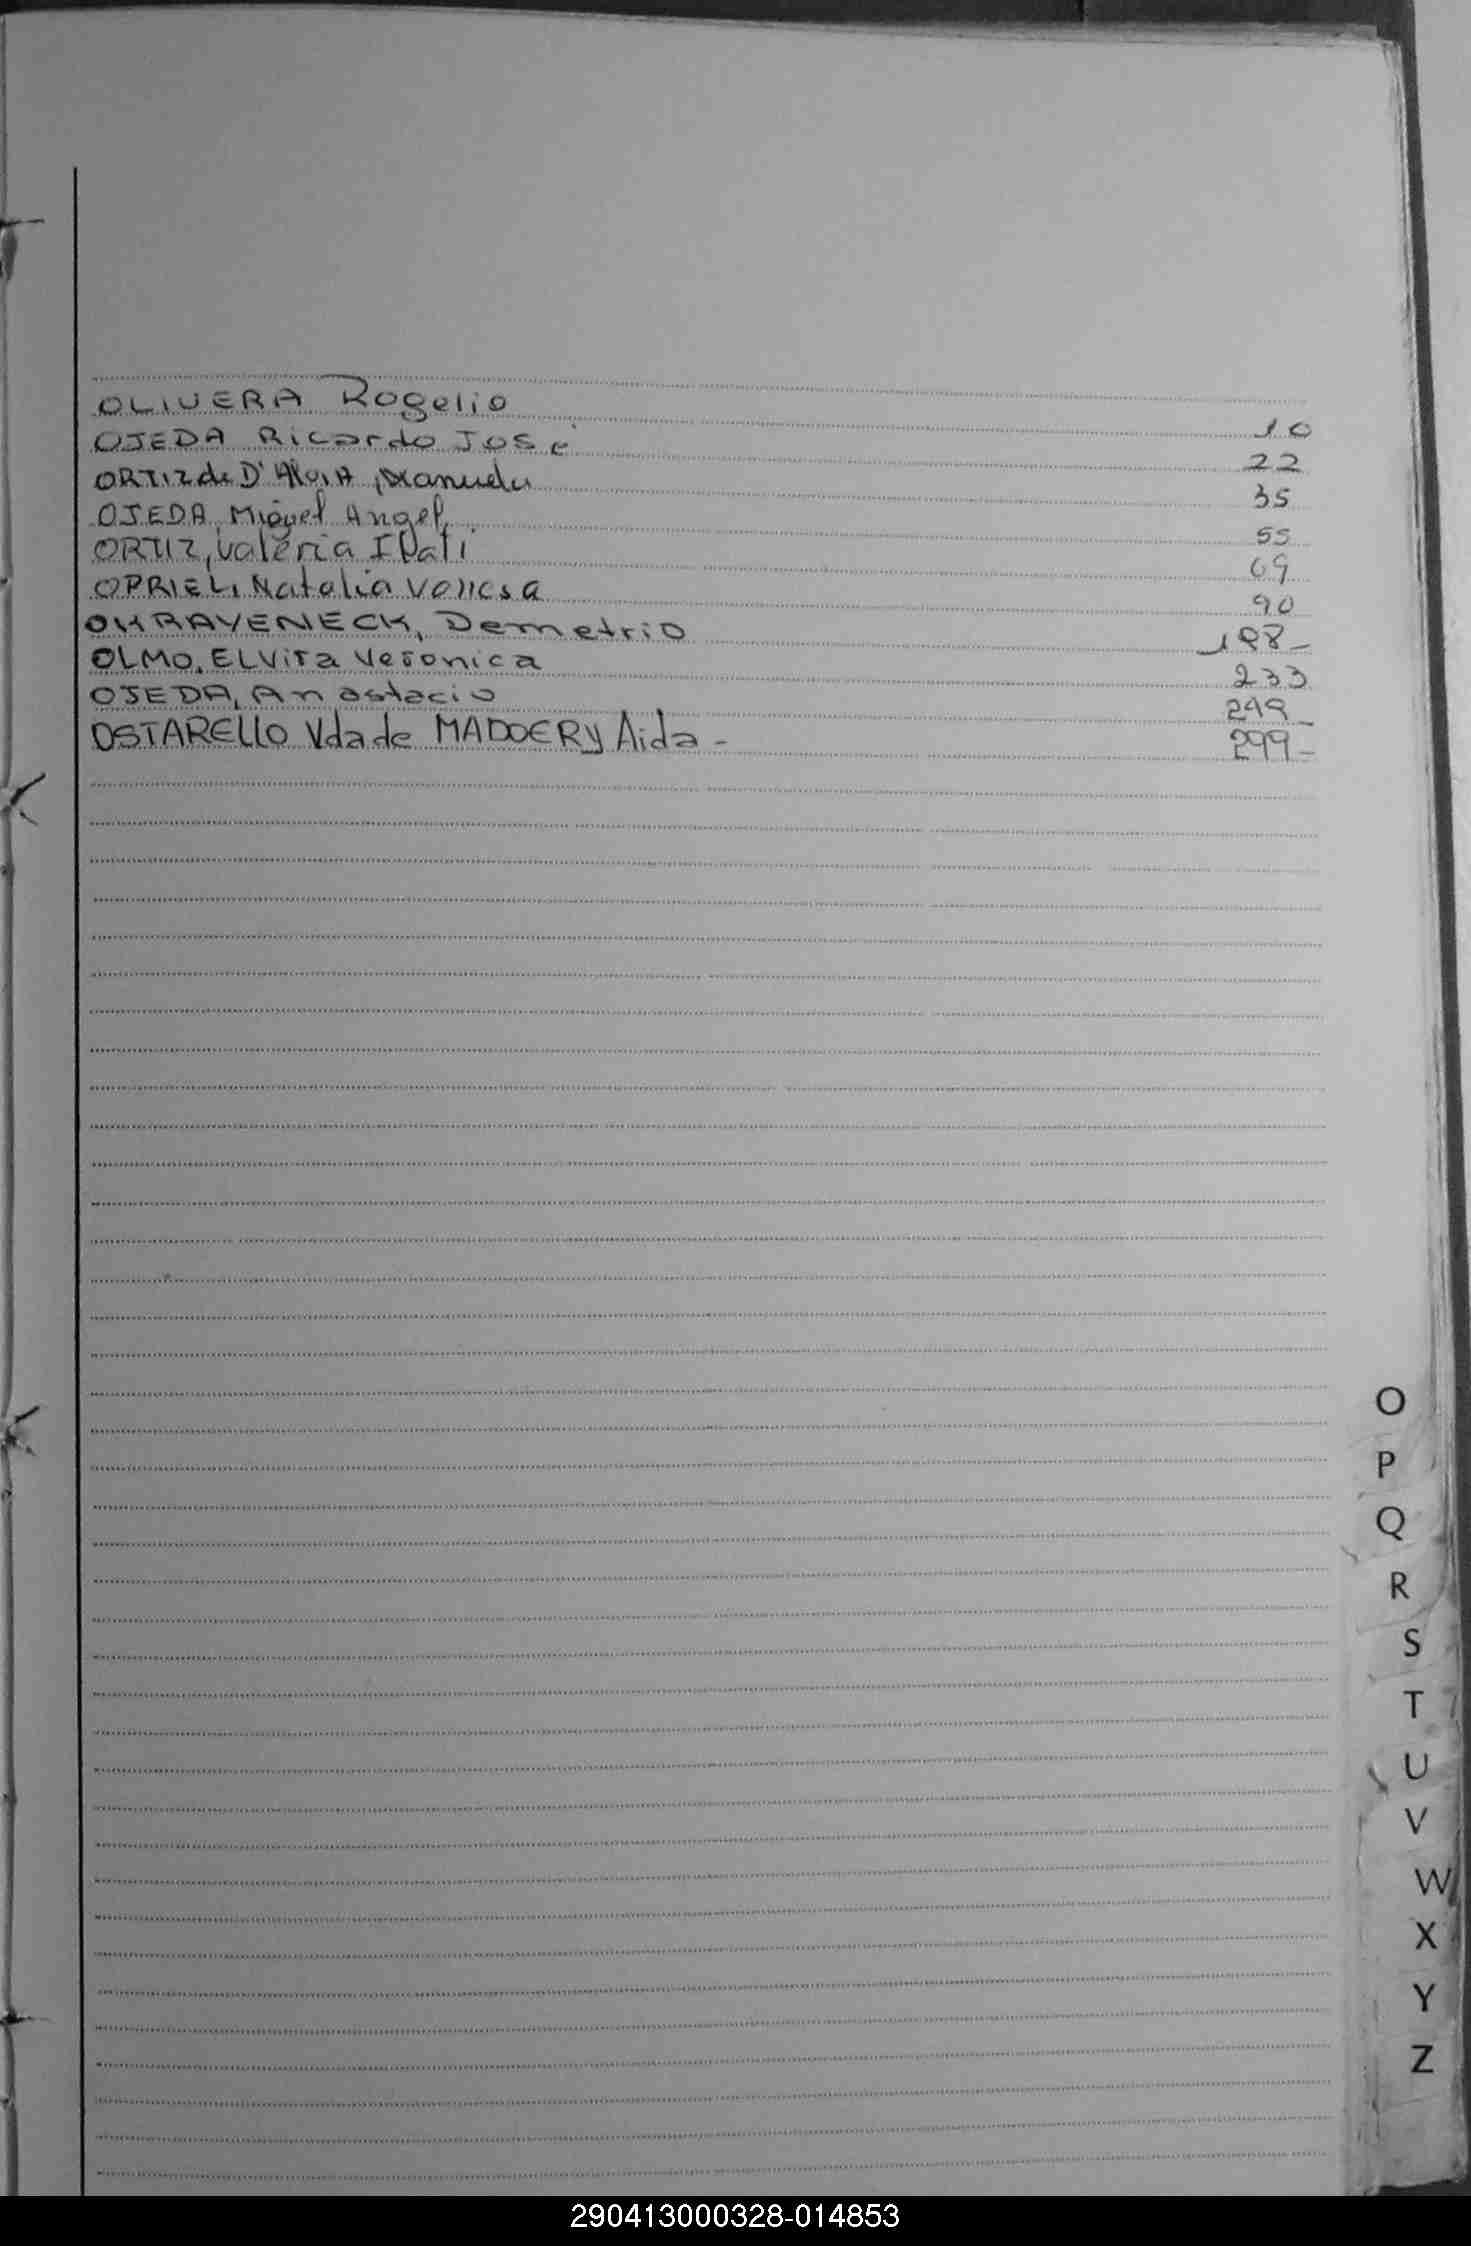 OLIVERA Rogelio 10
OJEDA Ricardo José 22
ORTIZ de D' Manuela 35
OJEDA, Miguel Angel 55
ORTIZ, Valeria ITATI 69
OPRIEL, Natalia Vanesa 90
OKRAYENECK, Demetrio 198-
OLMO, ELVira Veronica 233
OJEDA, Anastacio 249-
OSTARELLO Vda de MADOERY Aida - 299-
O
P
Q
R
S
T
U
V
W
X
Y
Z
290413000328-014853